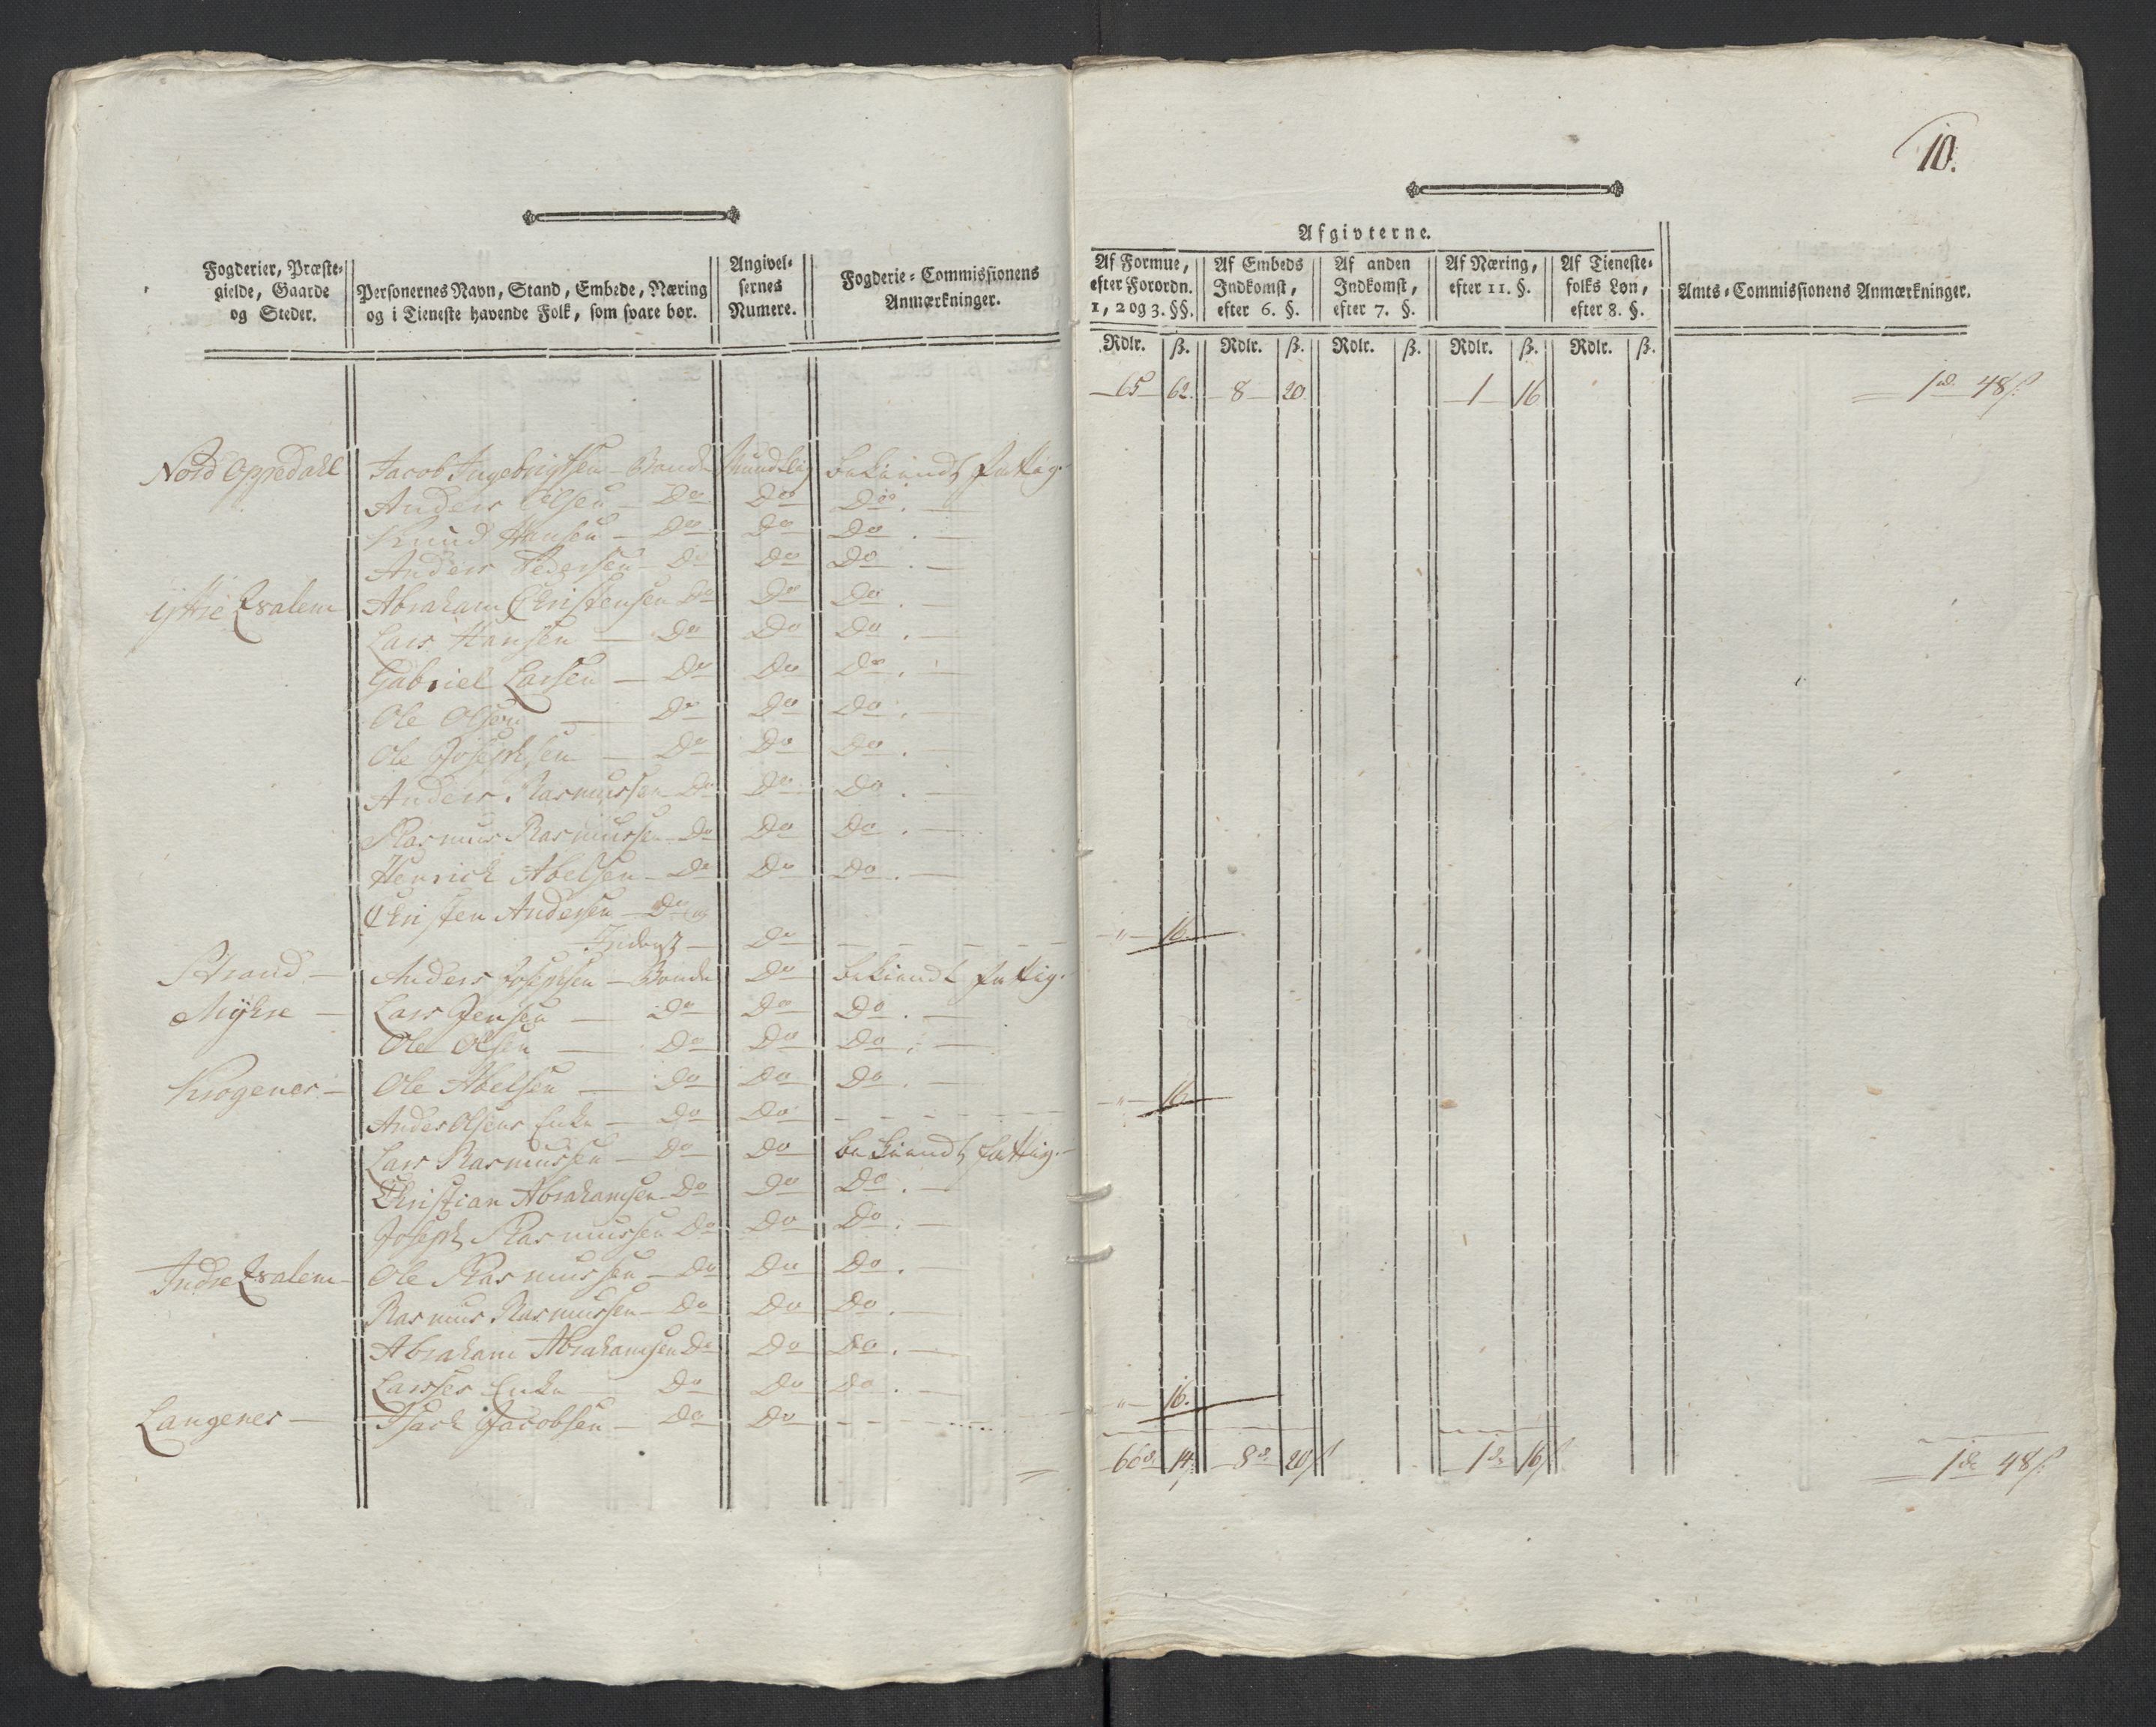 10.
Afgivterne.
Fogderier, Præste-
gielde, Gaarde
og Steder.
Personernes Navn, Stand, Embede, Næring
og i Tieneste havende Folk, som svare bør.
Angivel-
sernes
Numere.
Fogderie-Commissionens
Anmærkninger.
Af Formue,
efter Forordn.
1, 2 og 3. §§.
Af Embeds
Indkomst,
efter 6. §.
Af anden
Indkomst,
efter 7. §.
Af Næring,
efter 11. §.
Af Tieneste-
folks Løn,
efter 8. §.
Amts-Commissionens Anmærkninger.
Rdlr. ß. Rdlr. ß. Rdlr. ß. Rdlr. ß. Rdlr. ß.
65 62. 8 20. 1 16 1 48
Nord Oppedahl Jacob Ingebrigtsen - Bonde Mundtlig bekiendt fattig.
Anders Olsen - Do Do Do. -
Knud Hansen - Do Do Do. -
Anders Pedersen - Do Do Do. -
Yttre Qvalem Abraham Christensen Do Do Do. -
Lars Hansen - Do Do Do. -
Gabriel Larsen - Do Do Do. -
Ole Olsen - Do Do Do. -
Ole Josephsen - Do Do Do. -
Anders Rasmussen Do Do Do. -
Rasmus Rasmussen Do Do Do. -
Henrick Abelsen - Do Do Do. -
Christen Andersen - Do
Do - " - 16.
Strand - Anders Josephsen - Bonde Do bekiendt fattig.
Mykre - Lars Jensen - Do Do Do. -
Ole Olsen - Do Do Do. -
Krogenes - Ole Abelsen - Do Do Do. -
Anders Olsens Enke - Do Do - " - 16.
Lars Rasmussen - Do Do bekiendt fattig. -
Christian Abrahamsen Do Do Do. -
Joseph Rasmussen Do Do Do. -
Indre Qvalem - Ole Rasmussen - Do Do Do. -
Rasmus Rasmussen - Do Do Do. -
Abraham Abrahamsen Do Do Do. -
Larses Enke - Do Do Do. -
Langenes - Isach Jacobsen - Do Do - " - 16.
66 14. 8 20 1 16 1 48